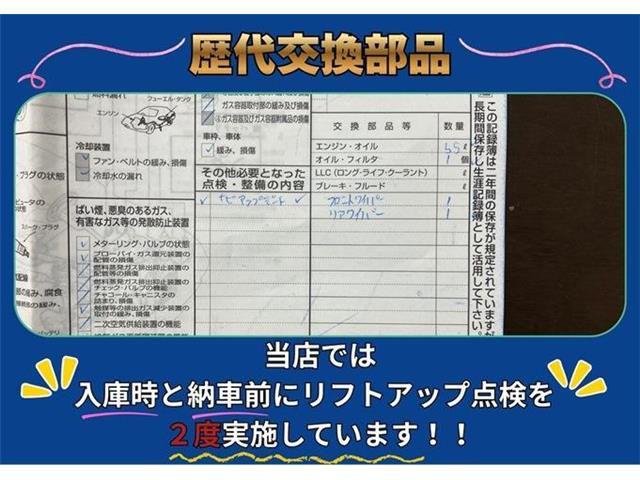 歴代交換部品
燃料漏れ
フューエル・タンク
エンジン
冷却装置
ファン・ベルトの緩み、損傷
冷却水の漏れ
ばい煙、悪臭のあるガス、
有害なガス等の発散防止装置
メターリング・バルブの状態
ブローバイ・ガス還元装置の
配管の損傷
燃料蒸発ガス排出抑止装置の
配管等の損傷
燃料蒸発ガス排出抑止装置の
チェック・バルブの機能
チャコール・キャニスタの
詰まり、損傷
触媒等の排出ガス減少装置の
取付の緩み、損傷
二次空気供給装置の機能
ガス容器取付部の緩み及び損傷
ガス容器及びガス容器附属品の損傷
車枠、車体
緩み、損傷
その他必要となった
点検・整備の内容
交換部品等 数量
エンジン・オイル 5.5 ℓ
オイル・フィルタ 1 個
LLC(ロング・ライフ・クーラント) ℓ
ブレーキ・フルード ℓ
フロントワイパー 1
リアワイパー 1
この記録簿は二年間の保存が規定されていますが
長期間保存し生涯記録簿として活用して下さい。
当店では
入庫時と納車前にリフトアップ点検を
2度実施しています!!